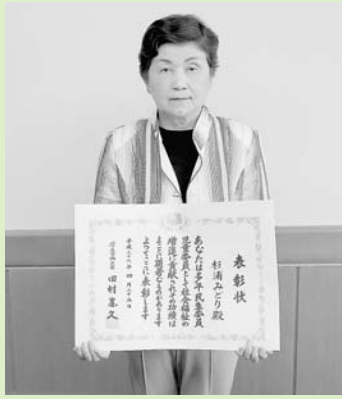 表彰状
杉浦みどり殿
あなたは多年民生委員
児童委員として社会福祉の
増進に貢献されその功績は
まことに顕著なものがあります
よってここに表彰します
平成二十六年四月二十五日
厚生労働大臣 田村憲久